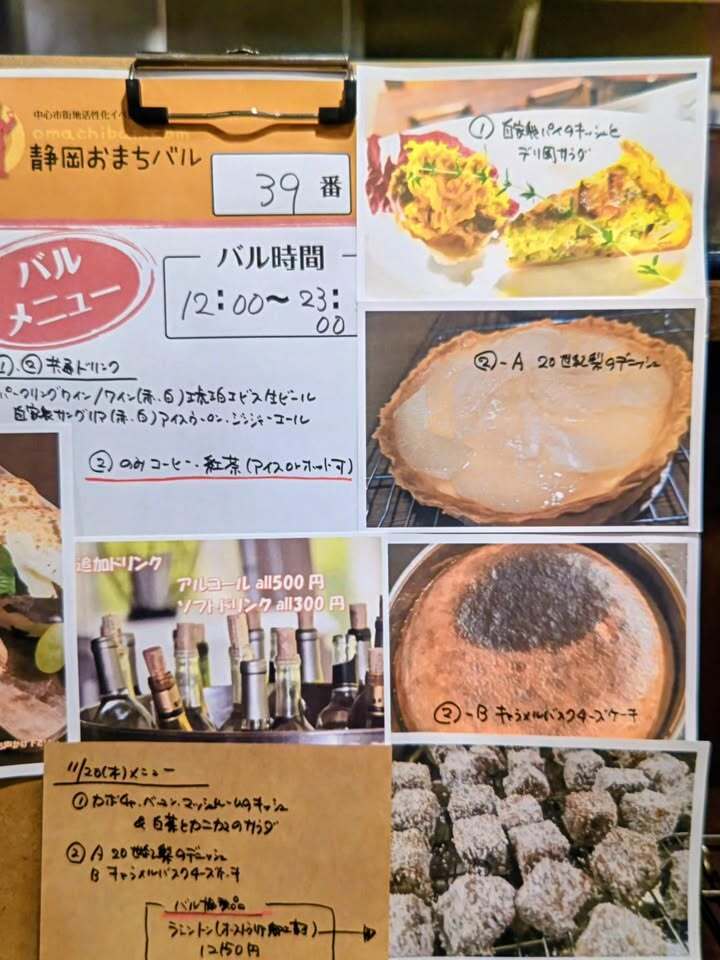 中心市街地活性化イベ
omachibar.com
静岡おまちバル
39番
バル
メニュー
バル時間
12:00〜23:00
①.②共通ドリンク
パークリングワイン/ワイン(赤.白)琥珀エビス生ビール
自家製サングリア(赤.白)アイスウーロン.ジンジャーエール
②のみコーヒー.紅茶(アイスorホット可)
①自家製パイのキッシュと
デリ風サラダ
②-A 20世紀梨のデニッシュ
追加ドリンク
アルコール all500円
ソフトドリンク all300円
②-B キャラメルバスクチーズケーキ
11/20(木)メニュー
①カボチャ.ベーコン.マッシュルームのキッシュ
&白菜とカニカマのサラダ
②A 20世紀梨のデニッシュ
B キャラメルバスクチーズケーキ
バル
ラミントン(オーストラリア
1コ150円